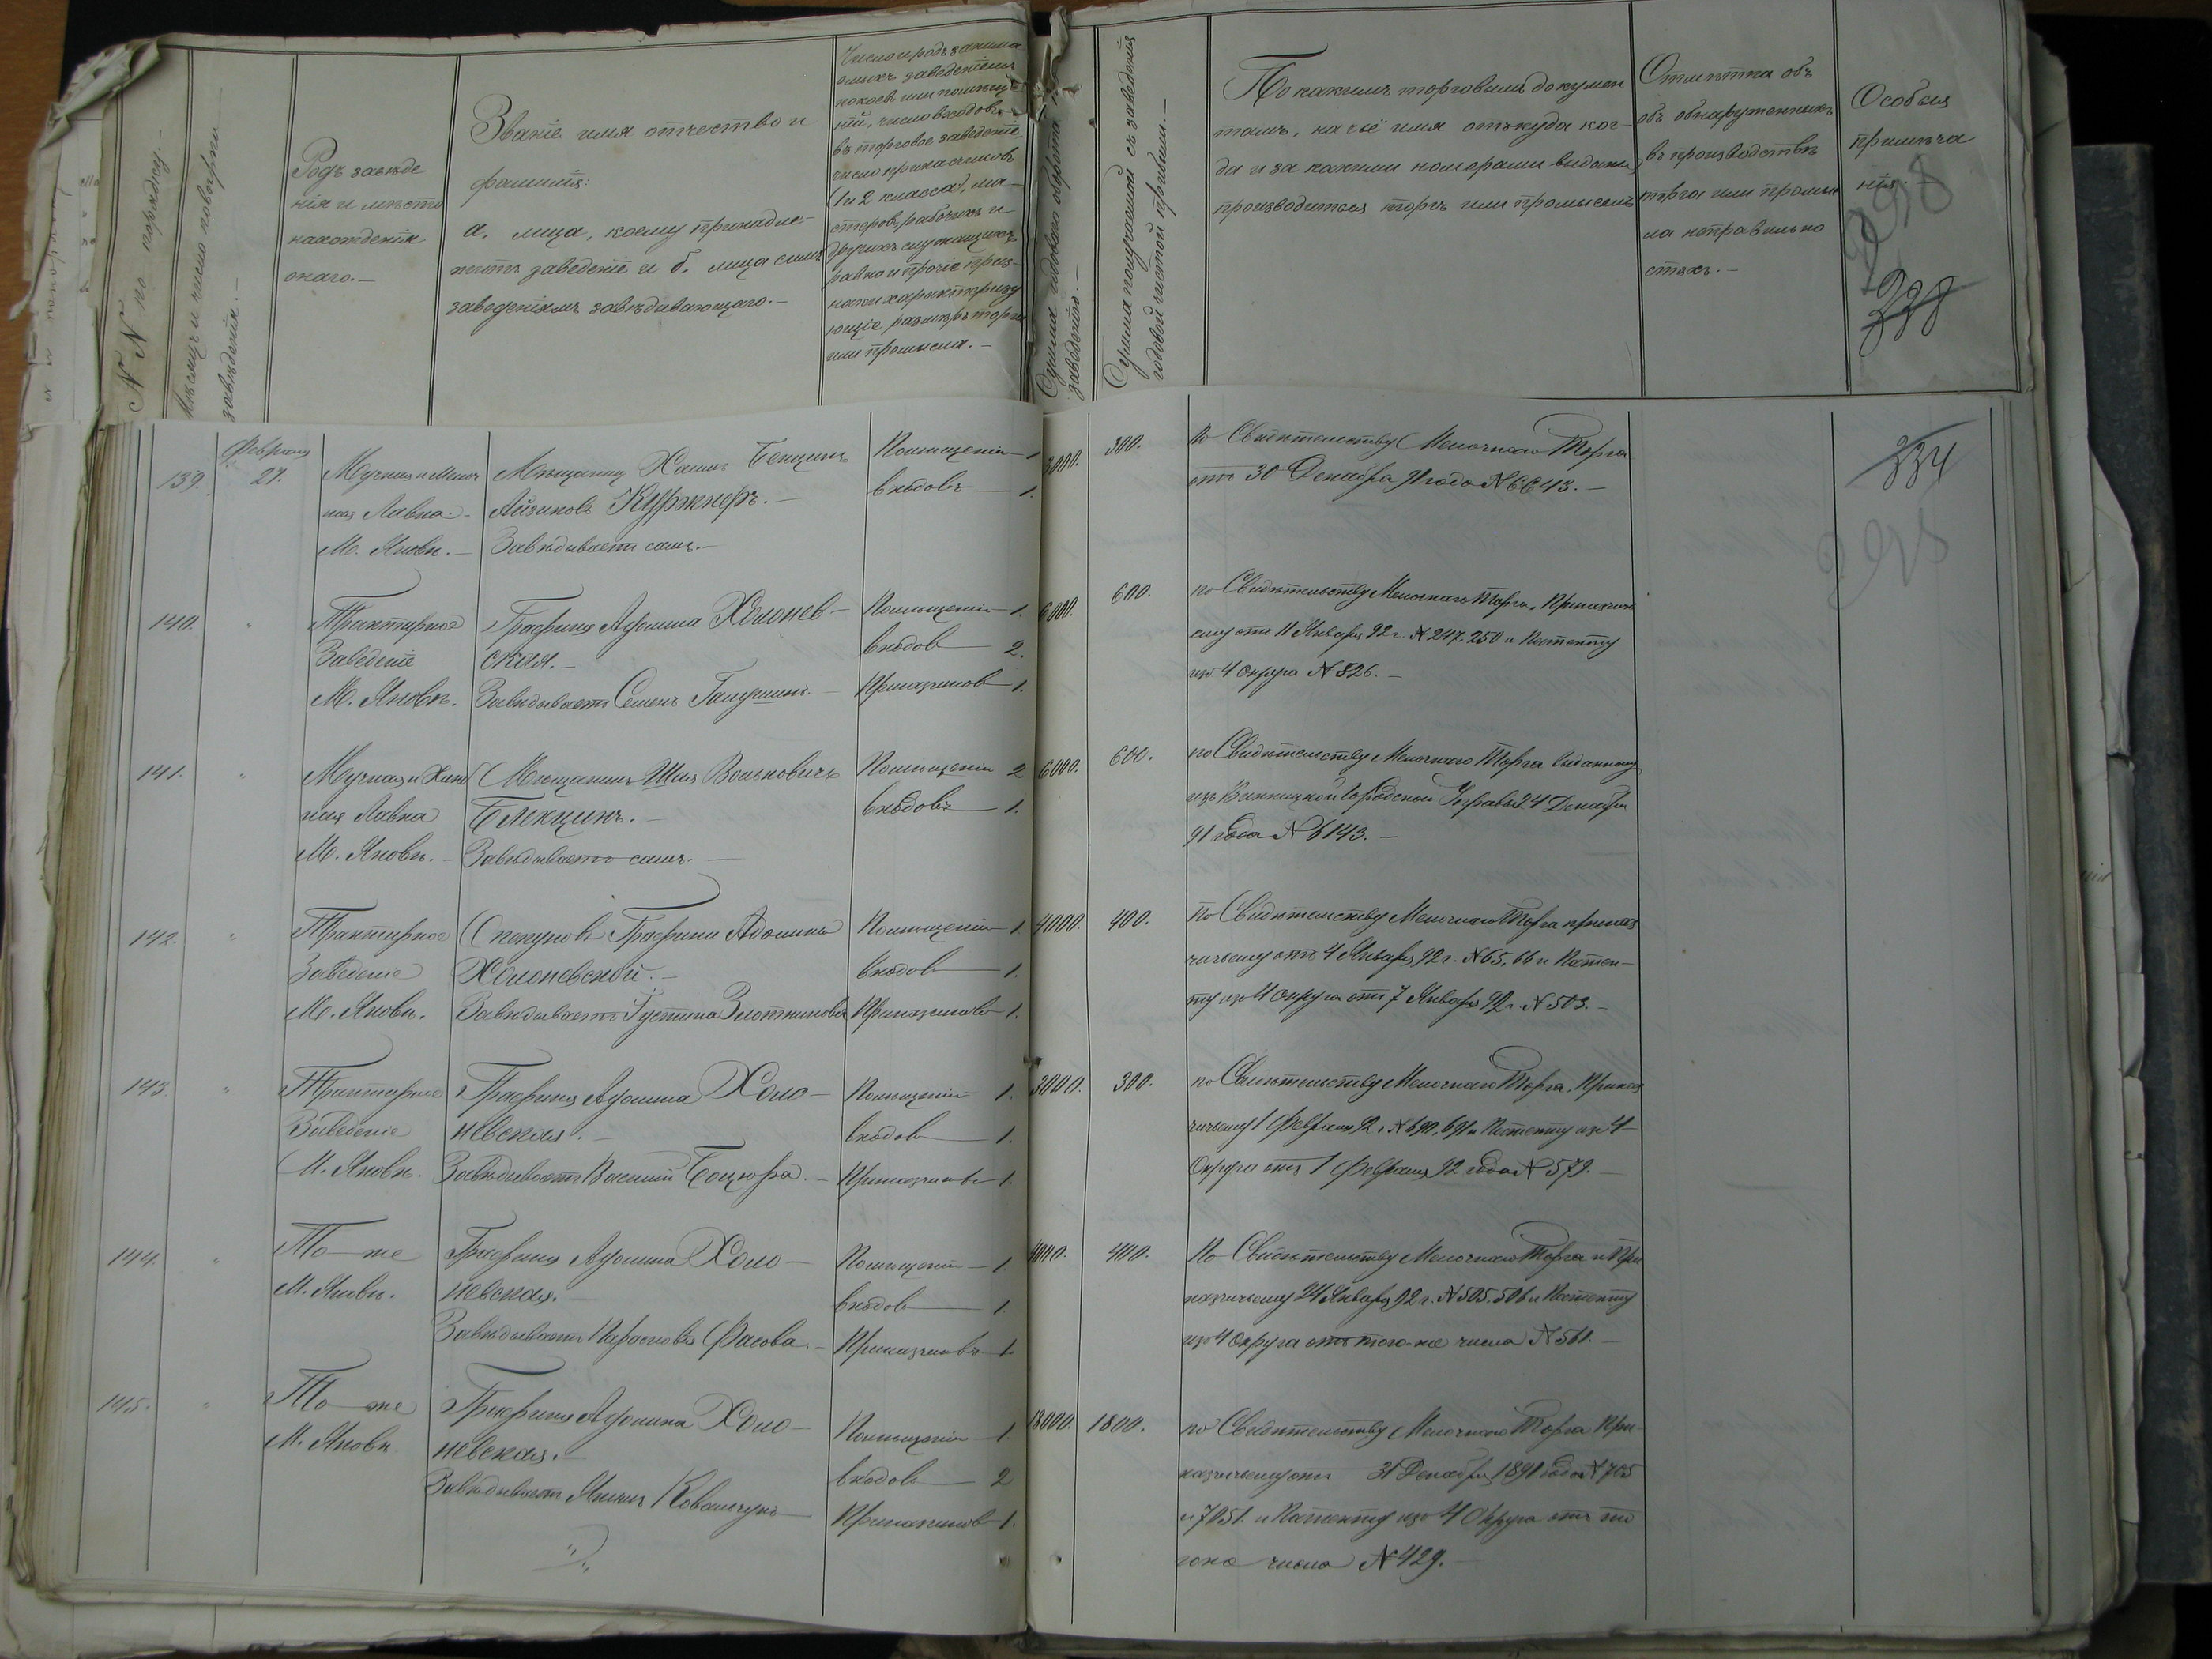 N N по порядку.-
Мѣсяцъ и число повѣрки
заведенія.-
Родъ заведе
нія и мѣсто
нахожденія
онаго.-
Званіе имя отчество и
фамилія:
а. лица, коему принадле-
житъ заведеніе и б. лица симъ
заведеніемъ завѣдывающаго.-
Число и родъ занима
емыхъ заведеніемъ
покоевъ или помѣще
ній, число входовъ
въ торговое заведеніе
число прикасчиковъ
(1 и 2 класса), ма-
стеровъ, рабочихъ и
другихъ служащихъ
равно и прочіе приз-
наки характеризу
ющіе размѣръ торга
или промысла.-
Сумма годоваго оборота
заведенія.-
Сумма получаемой съ заведенія
годовой чистой прибыли.-
По какимъ торговымъ докумен
тамъ, на чьё имя откуда ког-
да и за какими номерами выданы,
производится торгъ или промыселъ
Отмѣтка объ
объ обнаруженныхъ
въ производствѣ
торга или промыс
ла неправильно
стяхъ.-
Особыя
примѣча
нія.
298
338
139.
Февраля
27.
Мучная и Мелоч
ная Лавка.-
М. Яновъ.-
Мѣщанинъ Хаимъ Бенцинъ
Айзиковъ Куржнеръ.-
Завѣдываетъ самъ.-
Помѣщеній 1
входовъ 1.
3000.
300.
По Свидѣтельству Мелочнаго Торга
отъ 30 Декабря 91 года N 6643.-
334
295
140.
"
Трактирное
Заведеніе
М. Яновъ.
Графиня Адолина Холонев-
ская.-
Завѣдываетъ Семенъ Галушинъ.-
Помѣщеній 1.
входовъ 2.
Приказчиковъ 1.
6000.
600.
по Свидѣтельству Мелочнаго Торга, Приказчи
ьему отъ 11 Января 92 г. N 247. 250 и Патенту
изъ 4 округа N 526.-
141.
"
Мучная и
ная Лавка
М. Яновъ.-
Мѣщанинъ Шая Вольковичъ
Блекцинъ.-
Завѣдываетъ самъ.-
Помѣщеній 2
входовъ 1.
6000.
600.
по Свидѣтельству Мелочнаго Торга выданному
изъ Винницкой Городской Управы 24 Декабря
91 года N 6143.-
142.
"
Трактирное
Заведеніе
М. Яновъ.
Опекуновъ Графини Адолины
Холоневской.-
Завѣдываетъ Густина Злотникова
Помѣщеній 1.
входовъ 1.
Приказчиковъ 1.
4000.
400.
По Свидѣтельству Мелочнаго Торга приказ
чичьему отъ 4 Января 92 г. N 65, 66 и Патен-
ту изъ 4 округа отъ 7 Января 92 г. N 503.-
143.
"
Трактирное
Заведеніе
М. Яновъ.
Графиня Адолина Холо-
невская.-
Завѣдываетъ Василій Боцюра.-
Помѣщеній 1.
входовъ 1.
Приказчиковъ 1.
3000.
300.
по Свидѣтельству Мелочнаго Торга, Приказ
чичьему 1 Февраля 92 г. N 690, 691 и Патенту изъ 4
Округа отъ 1 Февраля 92 года N 579.-
144.
"
То-же
М. Яновъ.
Графиня Адолина Холо-
невская.-
Завѣдываетъ Парасковія Фасова.-
Помѣщеній 1.
входовъ 1.
Приказчиковъ 1.
4000.
400.
По Свидѣтельству Мелочнаго Торга и При
казчичьему 24 Января 92 г. N 505, 506 и Патенту
изъ 4 округа отъ того-же числа N 561.-
145.
"
То же
М. Яновъ.
Графиня Адолина Холо-
невская.-
Завѣдываетъ Якимъ Ковальчукъ
Помѣщеній 1.
входовъ 2
Приказчиковъ 1.
18000.
1800.
по Свидѣтельству Мелочнаго Торга При-
казчичьему отъ 31 Декабря 1891 года N 705
и 7051. и Патенту изъ 4 Округа отъ то
гоже числа N 429.-